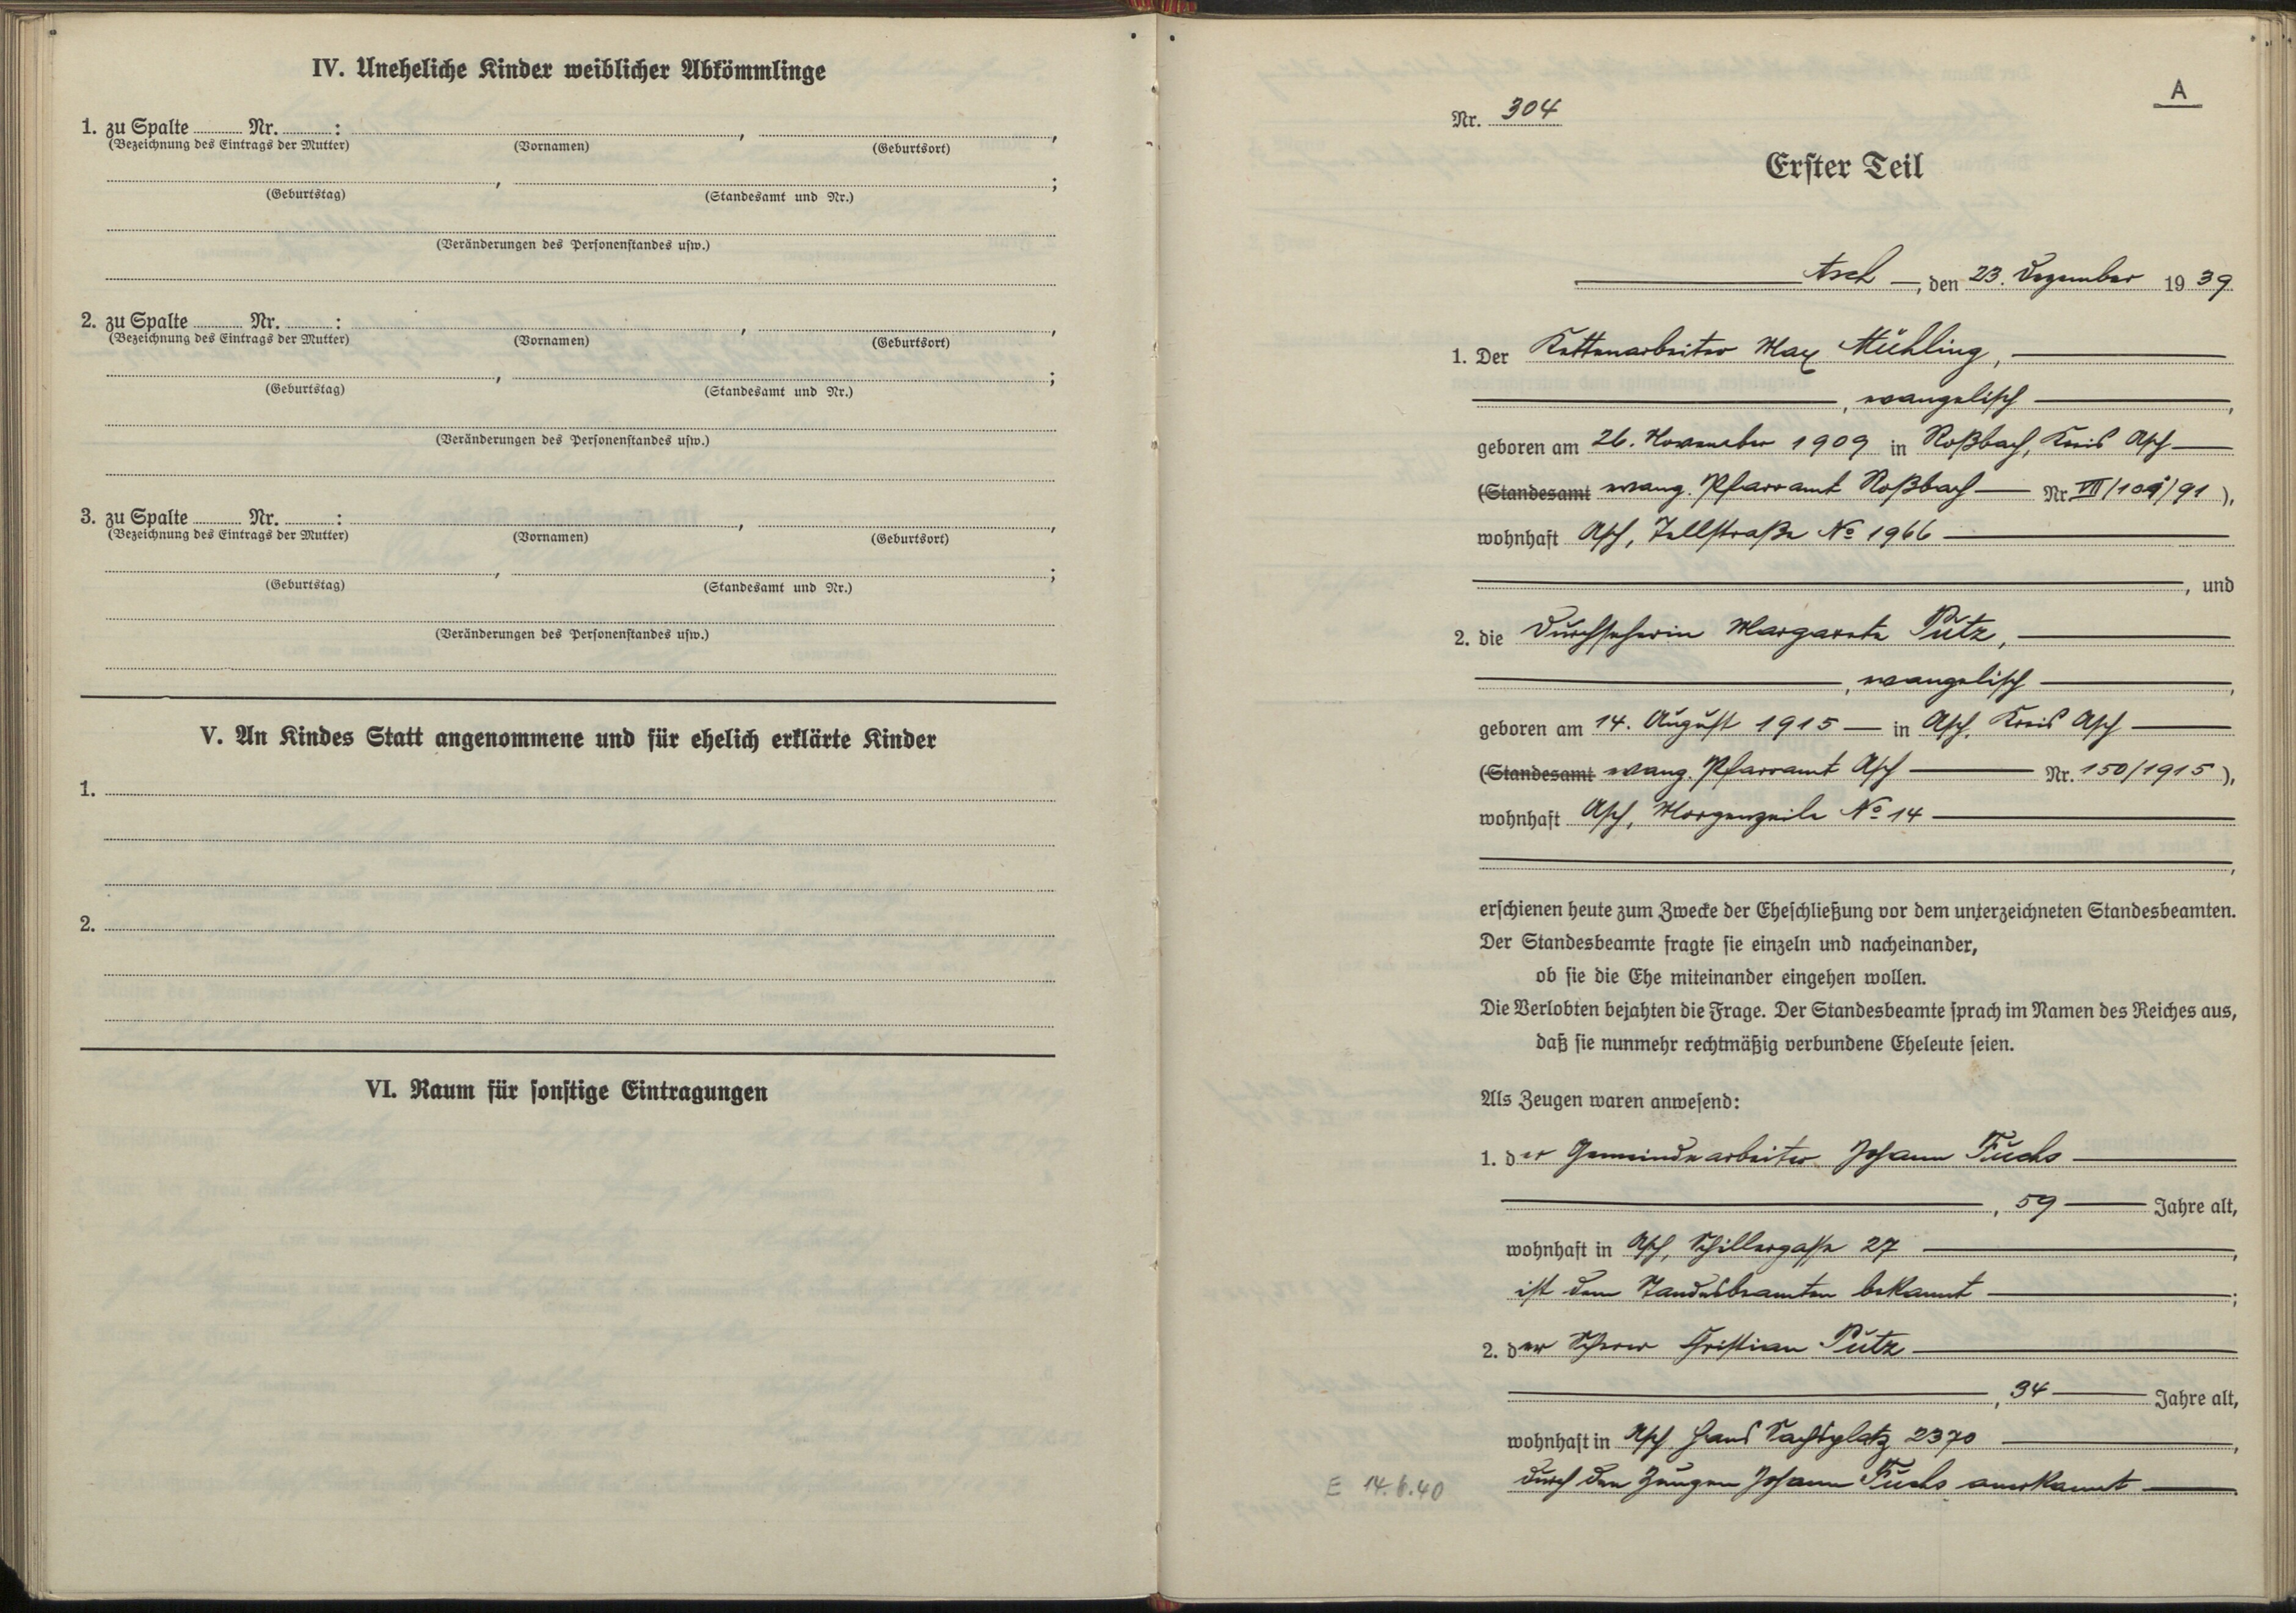 IV. Uneheliche Kinder weiblicher Abkömmlinge
1. zu Spalte ........ Nr. ........ : , ,
(Bezeichnung des Eintrags der Mutter) (Vornamen) (Geburtsort)
, ;
(Geburtstag) (Standesamt und Nr.)
(Veränderungen des Personenstandes usw.)
2. zu Spalte ........ Nr. ........ : , ,
(Bezeichnung des Eintrags der Mutter) (Vornamen) (Geburtsort)
, ;
(Geburtstag) (Standesamt und Nr.)
(Veränderungen des Personenstandes usw.)
3. zu Spalte ........ Nr. ........ : , ,
(Bezeichnung des Eintrags der Mutter) (Vornamen) (Geburtsort)
, ;
(Geburtstag) (Standesamt und Nr.)
(Veränderungen des Personenstandes usw.)
V. An Kindes Statt angenommene und für ehelich erklärte Kinder
1.
2.
VI. Raum für sonstige Eintragungen
A
Nr. 304
Erster Teil
Asch, den 23. Dezember 1939
1. Der Kettenarbeiter Max Mühling,
, evangelisch,
geboren am 26. November 1909 in Roßbach, Kreis Asch
(Standesamt evang. Pfarramt Roßbach Nr. VII/109/91),
wohnhaft Asch, Tellstraße No 1966
, und
2. die Durchseherin Margarete Pütz,
, evangelisch,
geboren am 14. August 1915 in Asch, Kreis Asch
(Standesamt evang. Pfarramt Asch Nr. 150/1915),
wohnhaft Asch, Morgenzeile No 14
,
erschienen heute zum Zwecke der Eheschließung vor dem unterzeichneten Standesbeamten.
Der Standesbeamte fragte sie einzeln und nacheinander,
ob sie die Ehe miteinander eingehen wollen.
Die Verlobten bejahten die Frage. Der Standesbeamte sprach im Namen des Reiches aus,
daß sie nunmehr rechtmäßig verbundene Eheleute seien.
Als Zeugen waren anwesend:
1. der Gemeindearbeiter Johann Fuchs
, 59 Jahre alt,
wohnhaft in Asch, Schillergasse 27,
ist dem Standesbeamten bekannt;
2. der Scherer Christian Pütz
, 34 Jahre alt,
wohnhaft in Asch, Hans Sachsplatz 2370,
durch den Zeugen Johann Fuchs anerkannt.
E 14.6.40